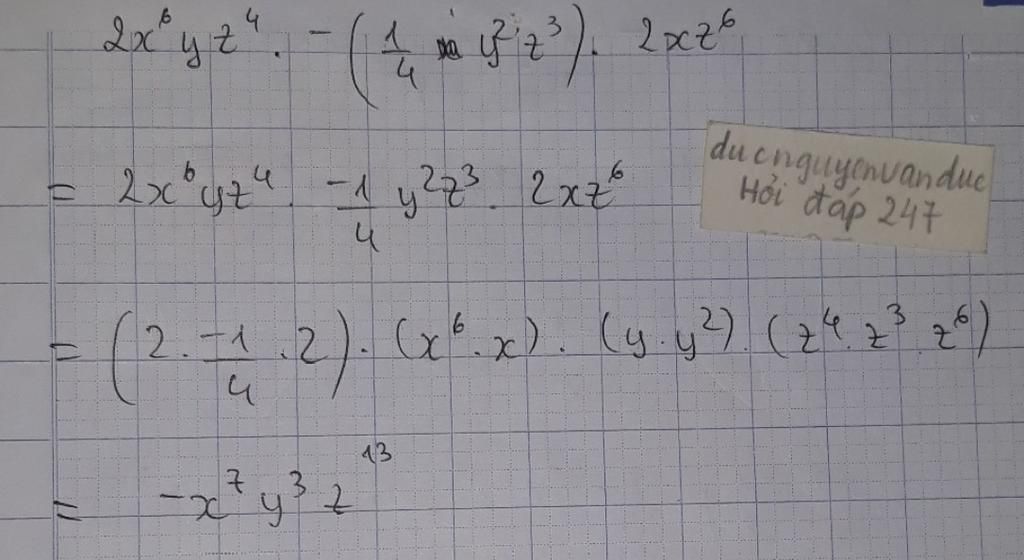 2x⁶yz⁴ . -(1/4 y²z³) . 2xz⁶
= 2x⁶yz⁴ . -1/4 y²z³ . 2xz⁶
ducnguyenvanduc
Hỏi đáp 247
= (2 . -1/4 . 2) . (x⁶ . x) . (y . y²) . (z⁴ . z³ . z⁶)
= -x⁷y³z¹³